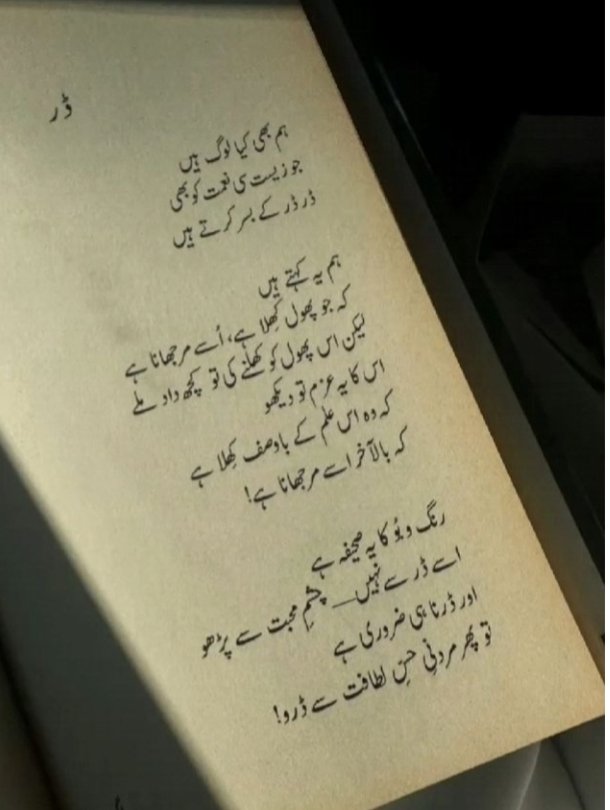 ڈر
ہم بھی کیا لوگ ہیں
جو زیست سی نعمت کو بھی
ڈر ڈر کے بسر کرتے ہیں
ہم یہ کہتے ہیں
کہ جو پھول کِھلا ہے، اُسے مرجھانا ہے
لیکن اس پھول کو کھلنے کی تو کچھ داد ملے
اس کا یہ عزم تو دیکھو
کہ وہ اس علم کے باوصف کِھلا ہے
کہ بالآخر اسے مرجھانا ہے!
رنگ و بُو کا یہ صحیفہ ہے
اسے ڈر سے نہیں ــــ چشمِ محبت سے پڑھو
اور ڈرنا ہی ضروری ہے
تو پھر مردنیِ حسِ لطافت سے ڈرو!